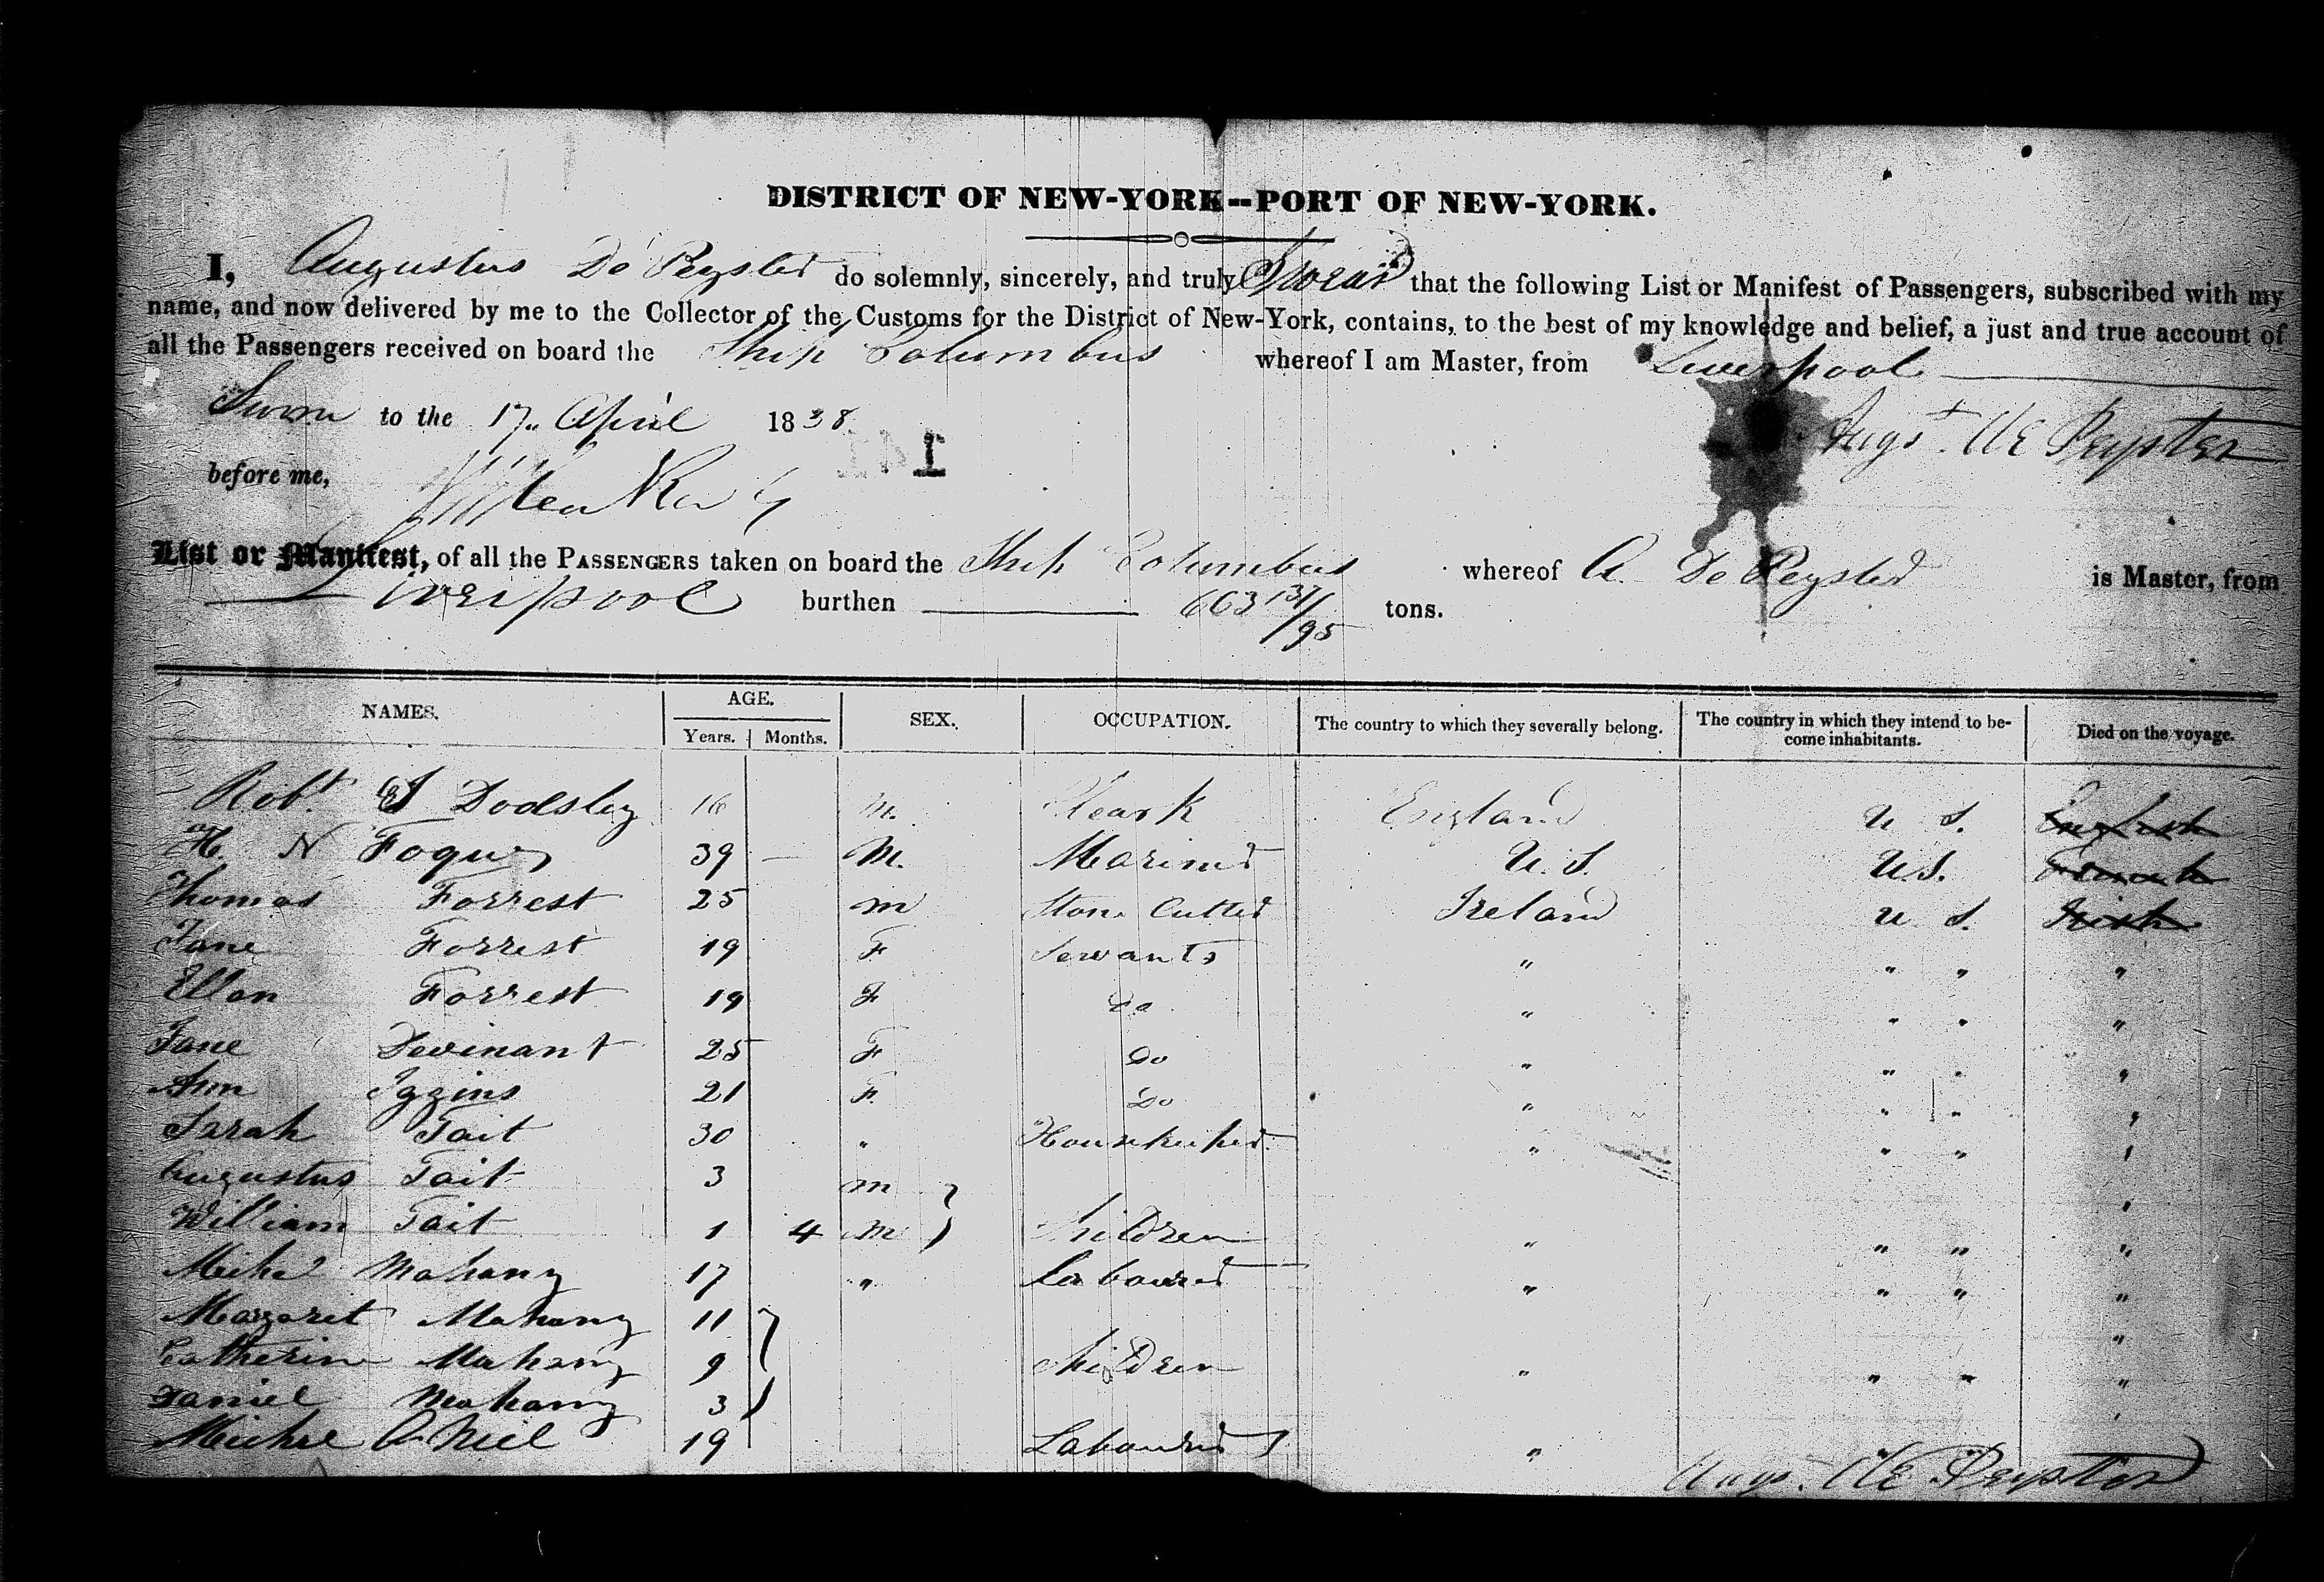 DISTRICT OF NEW-YORK--PORT OF NEW-YORK.
I, Augustus De Peyster do solemnly, sincerely, and truly Swear that the following List or Manifest of Passengers, subscribed with my
name, and now delivered by me to the Collector of the Customs for the District of New-York, contains, to the best of my knowledge and belief, a just and true account of
all the Passengers received on board the Ship Columbus whereof I am Master, from Liverpool
Sworn to the 17 April 1838.
Augst. DE Peyster
before me,
List or Manifest, of all the PASSENGERS taken on board the Ship Columbus whereof A. De Peyster is Master, from
Liverpool burthen 663 37/95 tons.
NAMES. AGE. SEX. OCCUPATION. The country to which they severally belong. The country in which they intend to be- Died on the voyage.
Years. Months. come inhabitants.
Robt. S Dodsley 16 M. Cleark England U S. English
H. N Foque 39 — M. Mariner U. S. U S. French
Thomas Forrest 25 m Stone Cutter Ireland U S. Irish
Jane Forrest 19 F Servants " " " "
Ellen Forrest 19 F Do " " " "
Jane Devinant 25 F Do " " " "
Ann Iggins 21 F. Do " " " "
Sarah Tait 30 " Housekeeper " " " "
Augustus Tait 3 m "
William Tait 1 4 m Children " " " "
Miche Mahany 17 " Labourer " " " "
Margaret Mahany 11 "
Catherine Mahany 9 Children " " " "
Daniel Mahany 3
Miche O Neil 19 Labourer " " "
Augs. DE Peyster